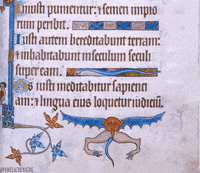 iniusti punientur: & semen impio
rum peribit.
Iusti autem hereditabunt terram:
& inhabitabunt in seculum seculi
super eam.
Os iusti meditabitur sapienti
am: & lingua eius loquetur iudiciū.